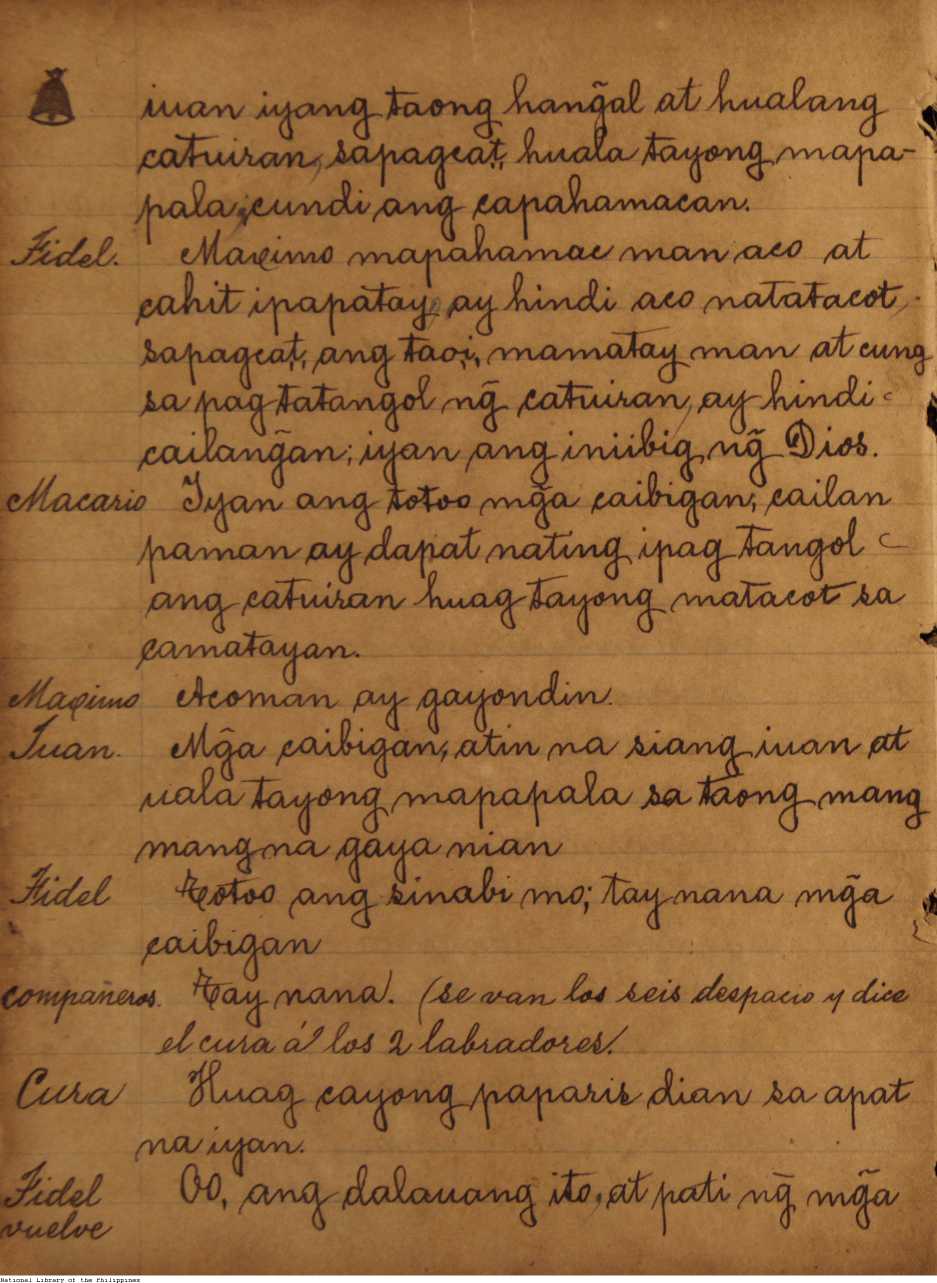 iuan iyang taong hang̃al at hualang
catuiran, sapagcat, huala tayong mapa-
pala, cundi ang capahamacan.
Fidel. Maximo mapahamac man aco at
cahit ipapatay, ay hindi aco natatacot,
sapagcat, ang taoi, mamatay man at cung
sa pag tatangol ng̃ catuiran, ay hindi
cailang̃an; iyan ang iniibig ng̃ Dios.
Macario Iyan ang totoo mg̃a caibigan; cailan
paman ay dapat nating ipag tangol
ang catuiran huag tayong matacot sa
camatayan.
Maximo Acoman ay gayondin.
Juan. Mg̃a caibigan; atin na siang iuan at
uala tayong mapapala sa taong mang
mang na gaya nian
Fidel Totoo ang sinabi mo; tay nana mg̃a
caibigan
compañeros. Tay nana. (se van los seis despacio y dice
el cura á los 2 labradores.
Cura Huag cayong paparis dian sa apat
na iyan.
Fidel Oo, ang dalauang ito, at pati ng̃ mg̃a
vuelve
National Library of the Philippines